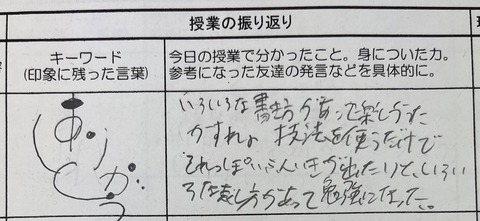 授業の振り返り
キーワード
(印象に残った言葉)
今日の授業で分かったこと。身についた力。
参考になった友達の発言などを具体的に。
ありがとう
いろいろな書き方があって楽しかった
かすれや技法を使うだけで
それっぽいふんいきが出たりと、いろい
ろな表し方があって勉強になった。